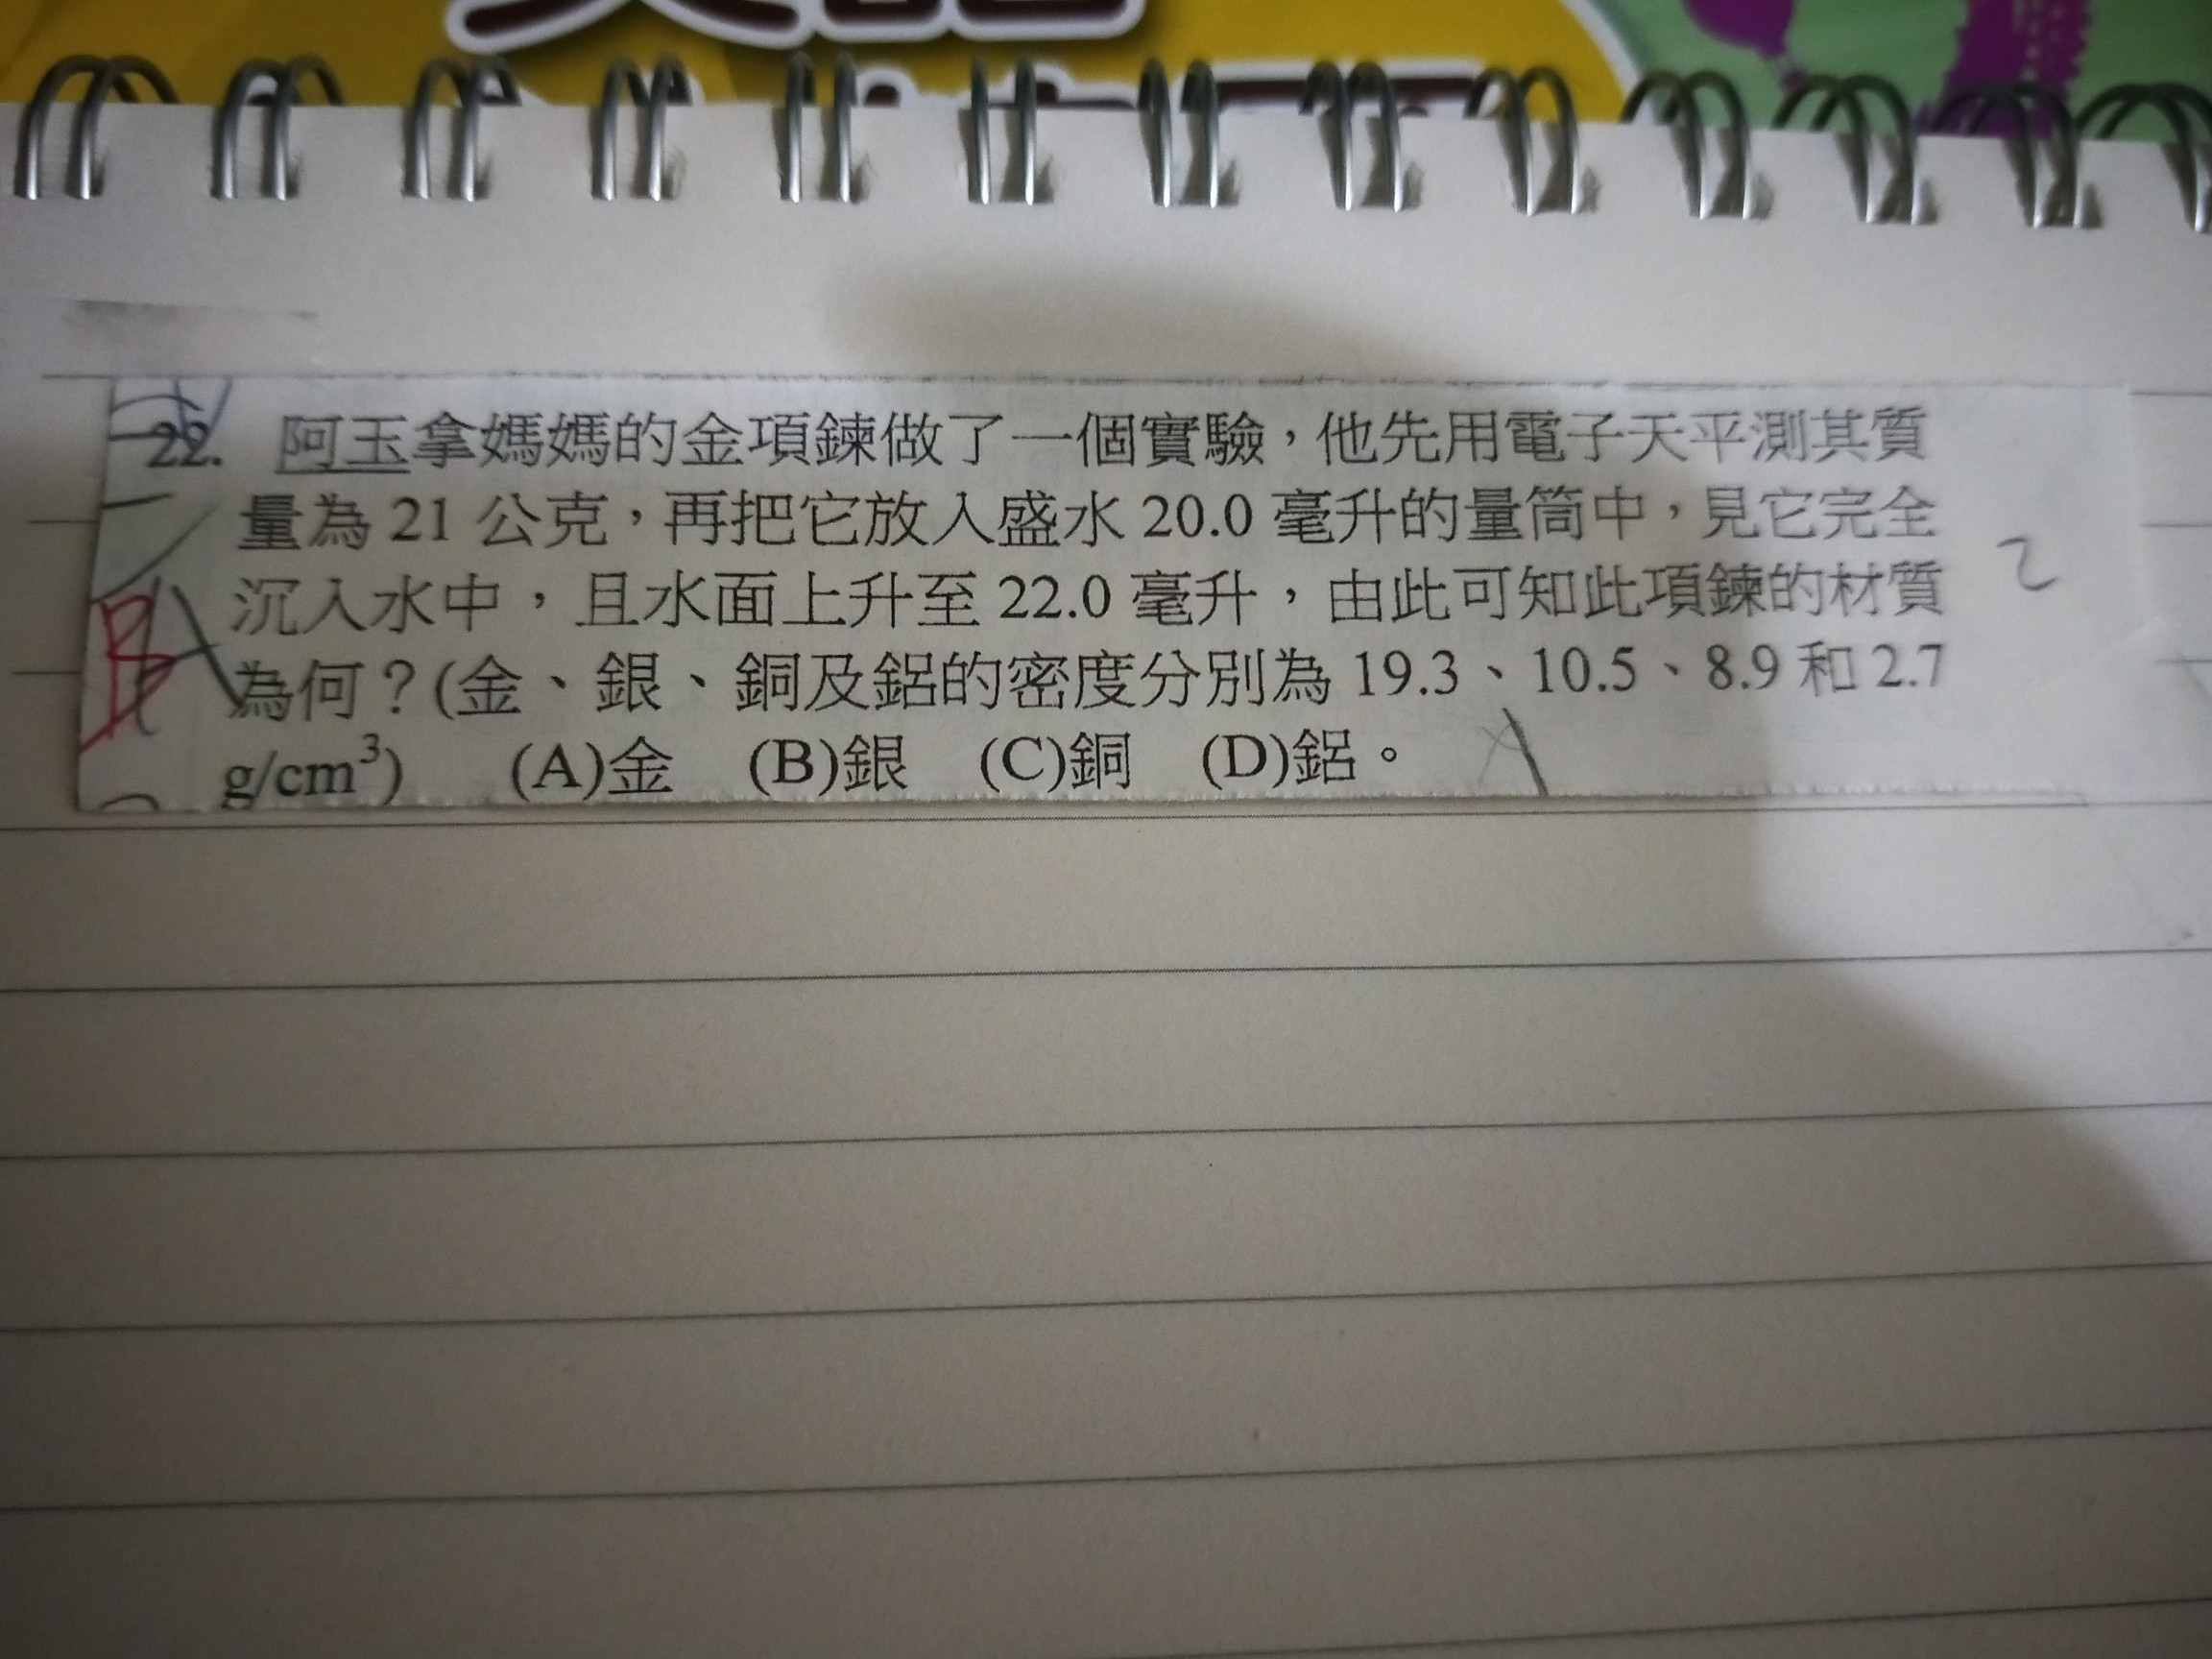 22. 阿玉拿媽媽的金項鍊做了一個實驗，他先用電子天平測其質
量為 21 公克，再把它放入盛水 20.0 毫升的量筒中，見它完全
沉入水中，且水面上升至 22.0 毫升，由此可知此項鍊的材質
為何？(金、銀、銅及鋁的密度分別為 19.3、10.5、8.9 和 2.7
g/cm³) (A)金 (B)銀 (C)銅 (D)鋁。
B
2